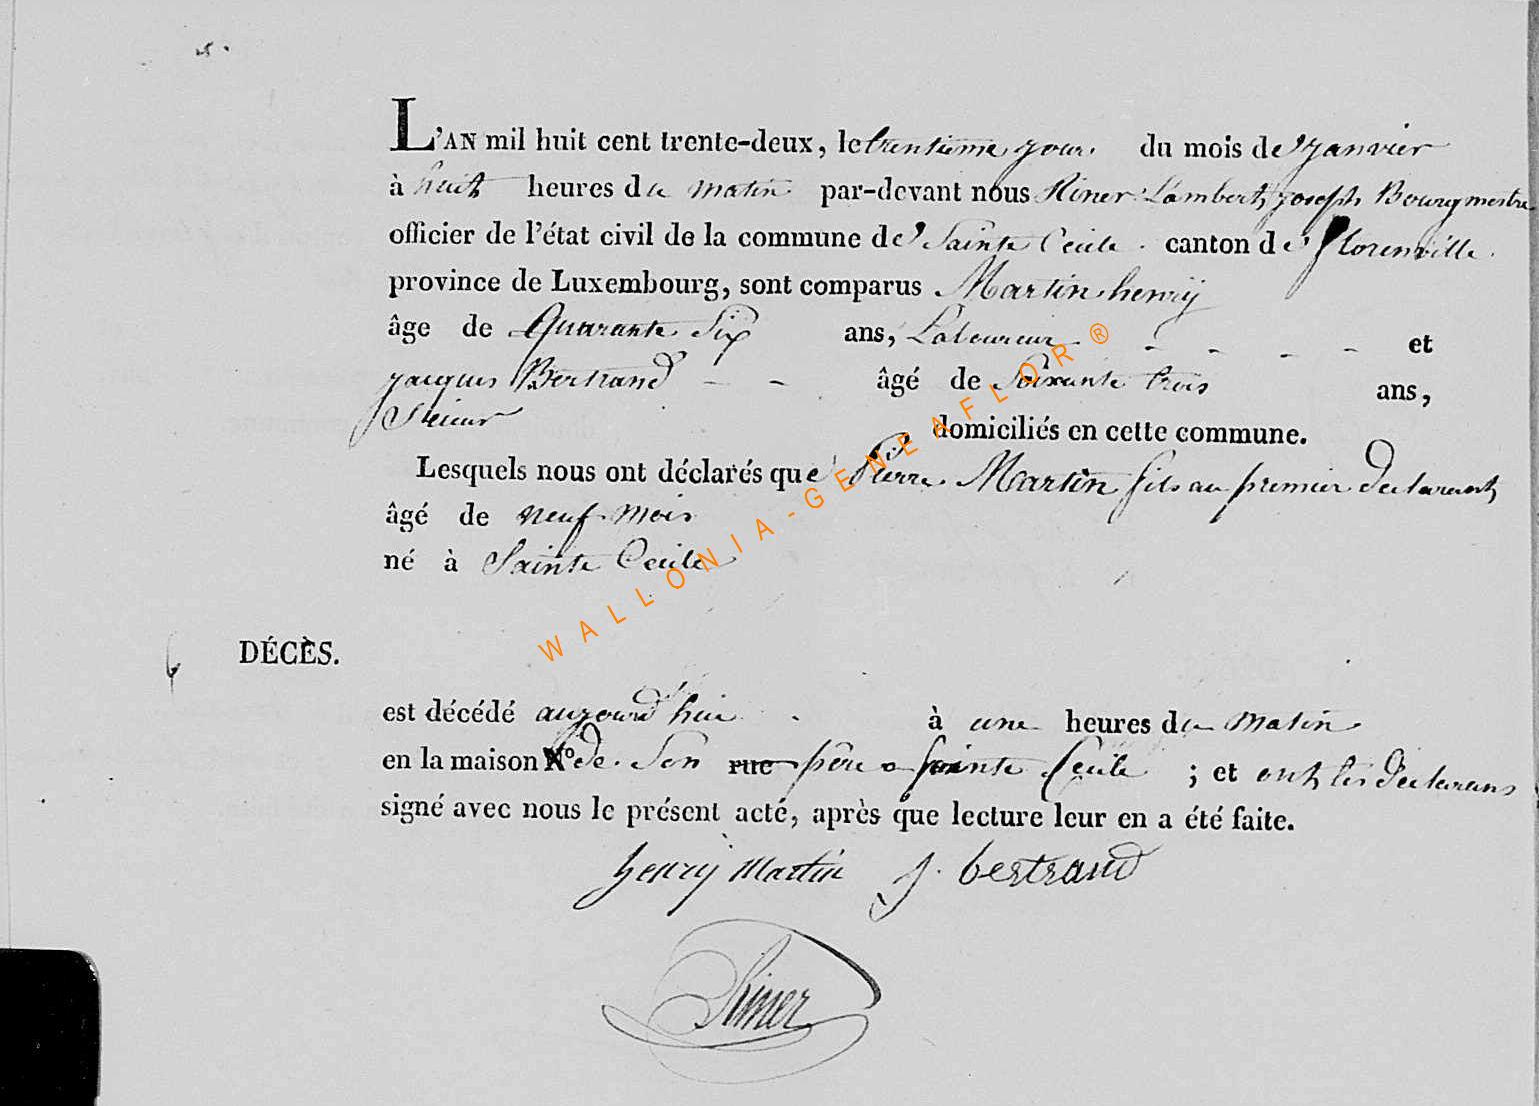 L'AN mil huit cent trente-deux, le trentieme jour du mois de janvier
à huit heures du matin par-devant nous Riner Lambert joseph Bourgmestre
officier de l'état civil de la commune de Sainte Cecile canton de florenville
province de Luxembourg, sont comparus Martin henrij
âge de Quarante Six ans, Laboureur et
jacques Bertrand âgé de Soixante trois ans,
domiciliés en cette commune.
Lesquels nous ont déclarés que Pierre Martin fils au premier declarant
âgé de neuf mois
né à Sainte Cecile
DÉCÈS.
est décédé aujourd'hui à une heures du matin
en la maison N° de Son rue père a Sainte Cecile ; et ont les declarans
signé avec nous le présent acté, après que lecture leur en a été faite.
henrij Martin j. bertrand
Riner
WALLONIA-GENEAFLOR®